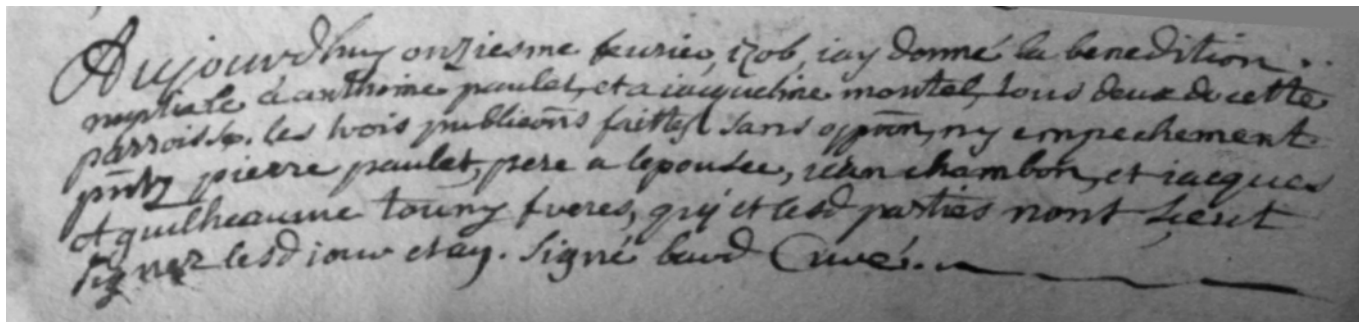 Aujourdhuy onziesme feurier, 1706, iay donné la benedition
nuptiale a anthoine paulet, et a iacqueline montel, tous deux de cette
parroisse. les trois publicõns faittes sans oppõn, ny empechement
pñtz pierre paulet, pere a lepousée, iean chambon, et iacques
et guilheaume touny freres, quy et lesd parties nont sceut
signer lesd iour et an. signé bard Curé.